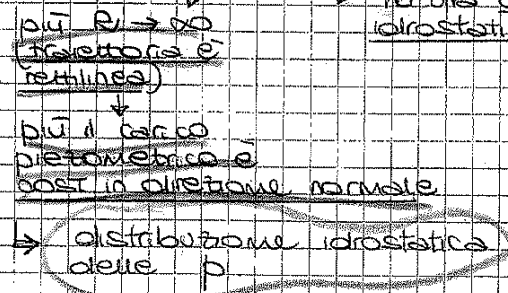 più R → ∞
(traiettoria è
rettilinea)
↓
più il carico
piezometrico è
cost in direzione normale
↳ distribuzione idrostatica
delle p
idrostati